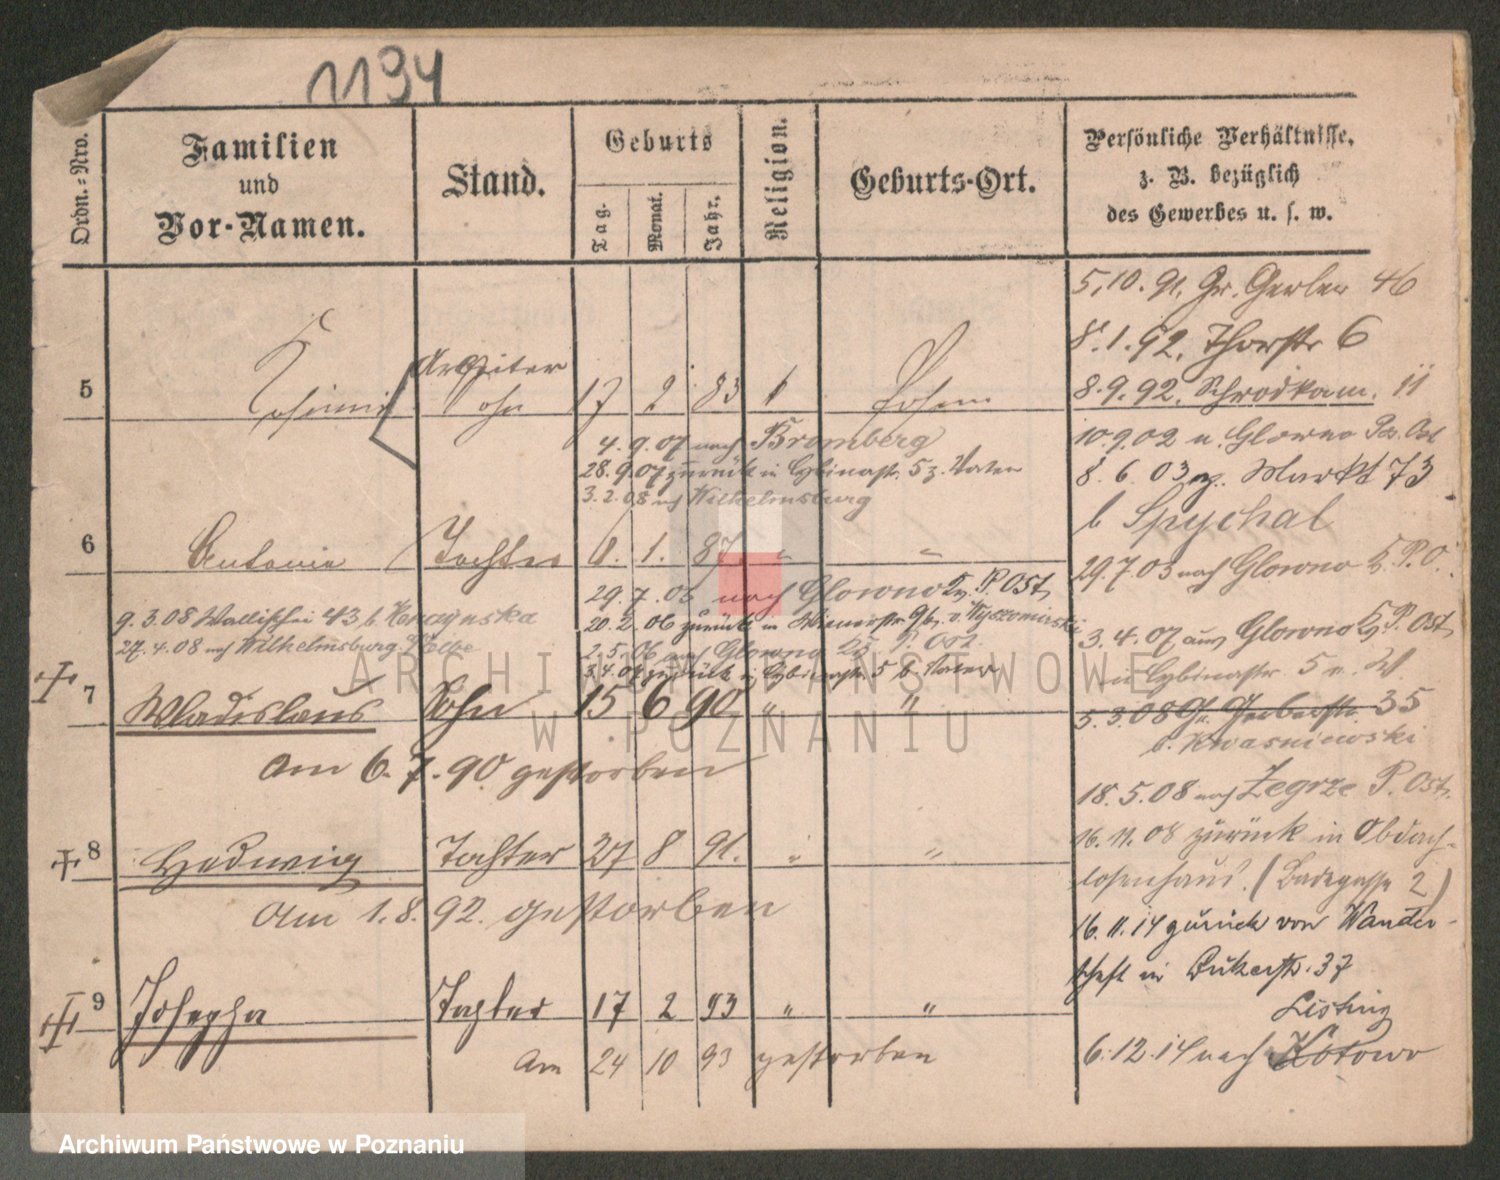 1134
Ordn.-Nro.
Familien
und
Vor-Namen.
Stand.
Geburts
Tag.
Monat.
Jahr.
Religion.
Geburts-Ort.
Persönliche Verhältnisse,
z. B. bezüglich
des Gewerbes u. s. w.
5 Arbeiter
Sohn 17 2 83 Posen
4.9.07 nach Bromberg
28.9.07 zurück in Cybinastr. 5 z. Vater
3.2.08 nach Wilhelmsburg
6 Antonie Tochter 1. 87 " "
29.7.06 nach Glowno P. Ost
20.2.06 zurück in Wienerstr.
2.5.06 nach Glowno P. Ost
3.4.07 zurück in Cybinastr. 5 b. Vater
9.3.08 Wallischei 43 b.
27.4.08 nach Wilhelmsburg
7 Wladislaus Sohn 15 6 90 " "
am 6. 7. 90 gestorben
8 Hedwig Tochter 27 8 91. " "
am 1. 8. 92. gestorben
9 Josepha Tochter 17 2 93 " "
am 24 10 93 gestorben
5.10.91. Gr. Gerber 46
8.1.92. Thorstr 6
8.9.92. Schrodkam. 11
10.9.02 n. Glowno Ps. Ost
8.6.03 Markt 73
b Spychal
29.7.03 nach Glowno P.O.
3.4.07 aus Glowno P. Ost
in Cybinastr. 5 v. W.
5.3.08 Gr. Gerberstr. 35
b. Kwasniewski
18.5.08 nach Zegrze P. Ost.
16.11.08 zurück in Obdach-
losenhaus. (Badegasse 2)
16.11.14 zurück von Wander-
schaft in Bukerstr. 37
6.12.14 nach Kotowo
ARCHIWUM PAŃSTWOWE
W POZNANIU
Archiwum Państwowe w Poznaniu